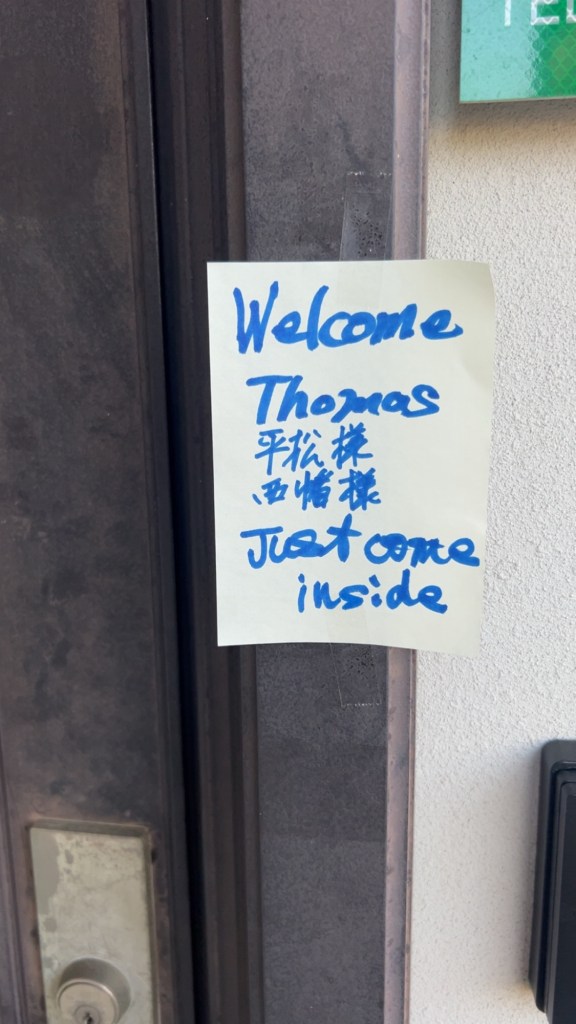 TEL
Welcome
Thomas
平松様
西幡様
Just come
inside